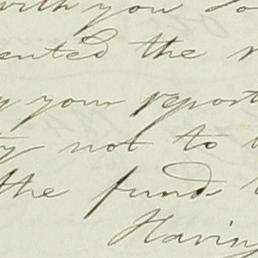 with you so
ented the
your report
not to
the funds
Having